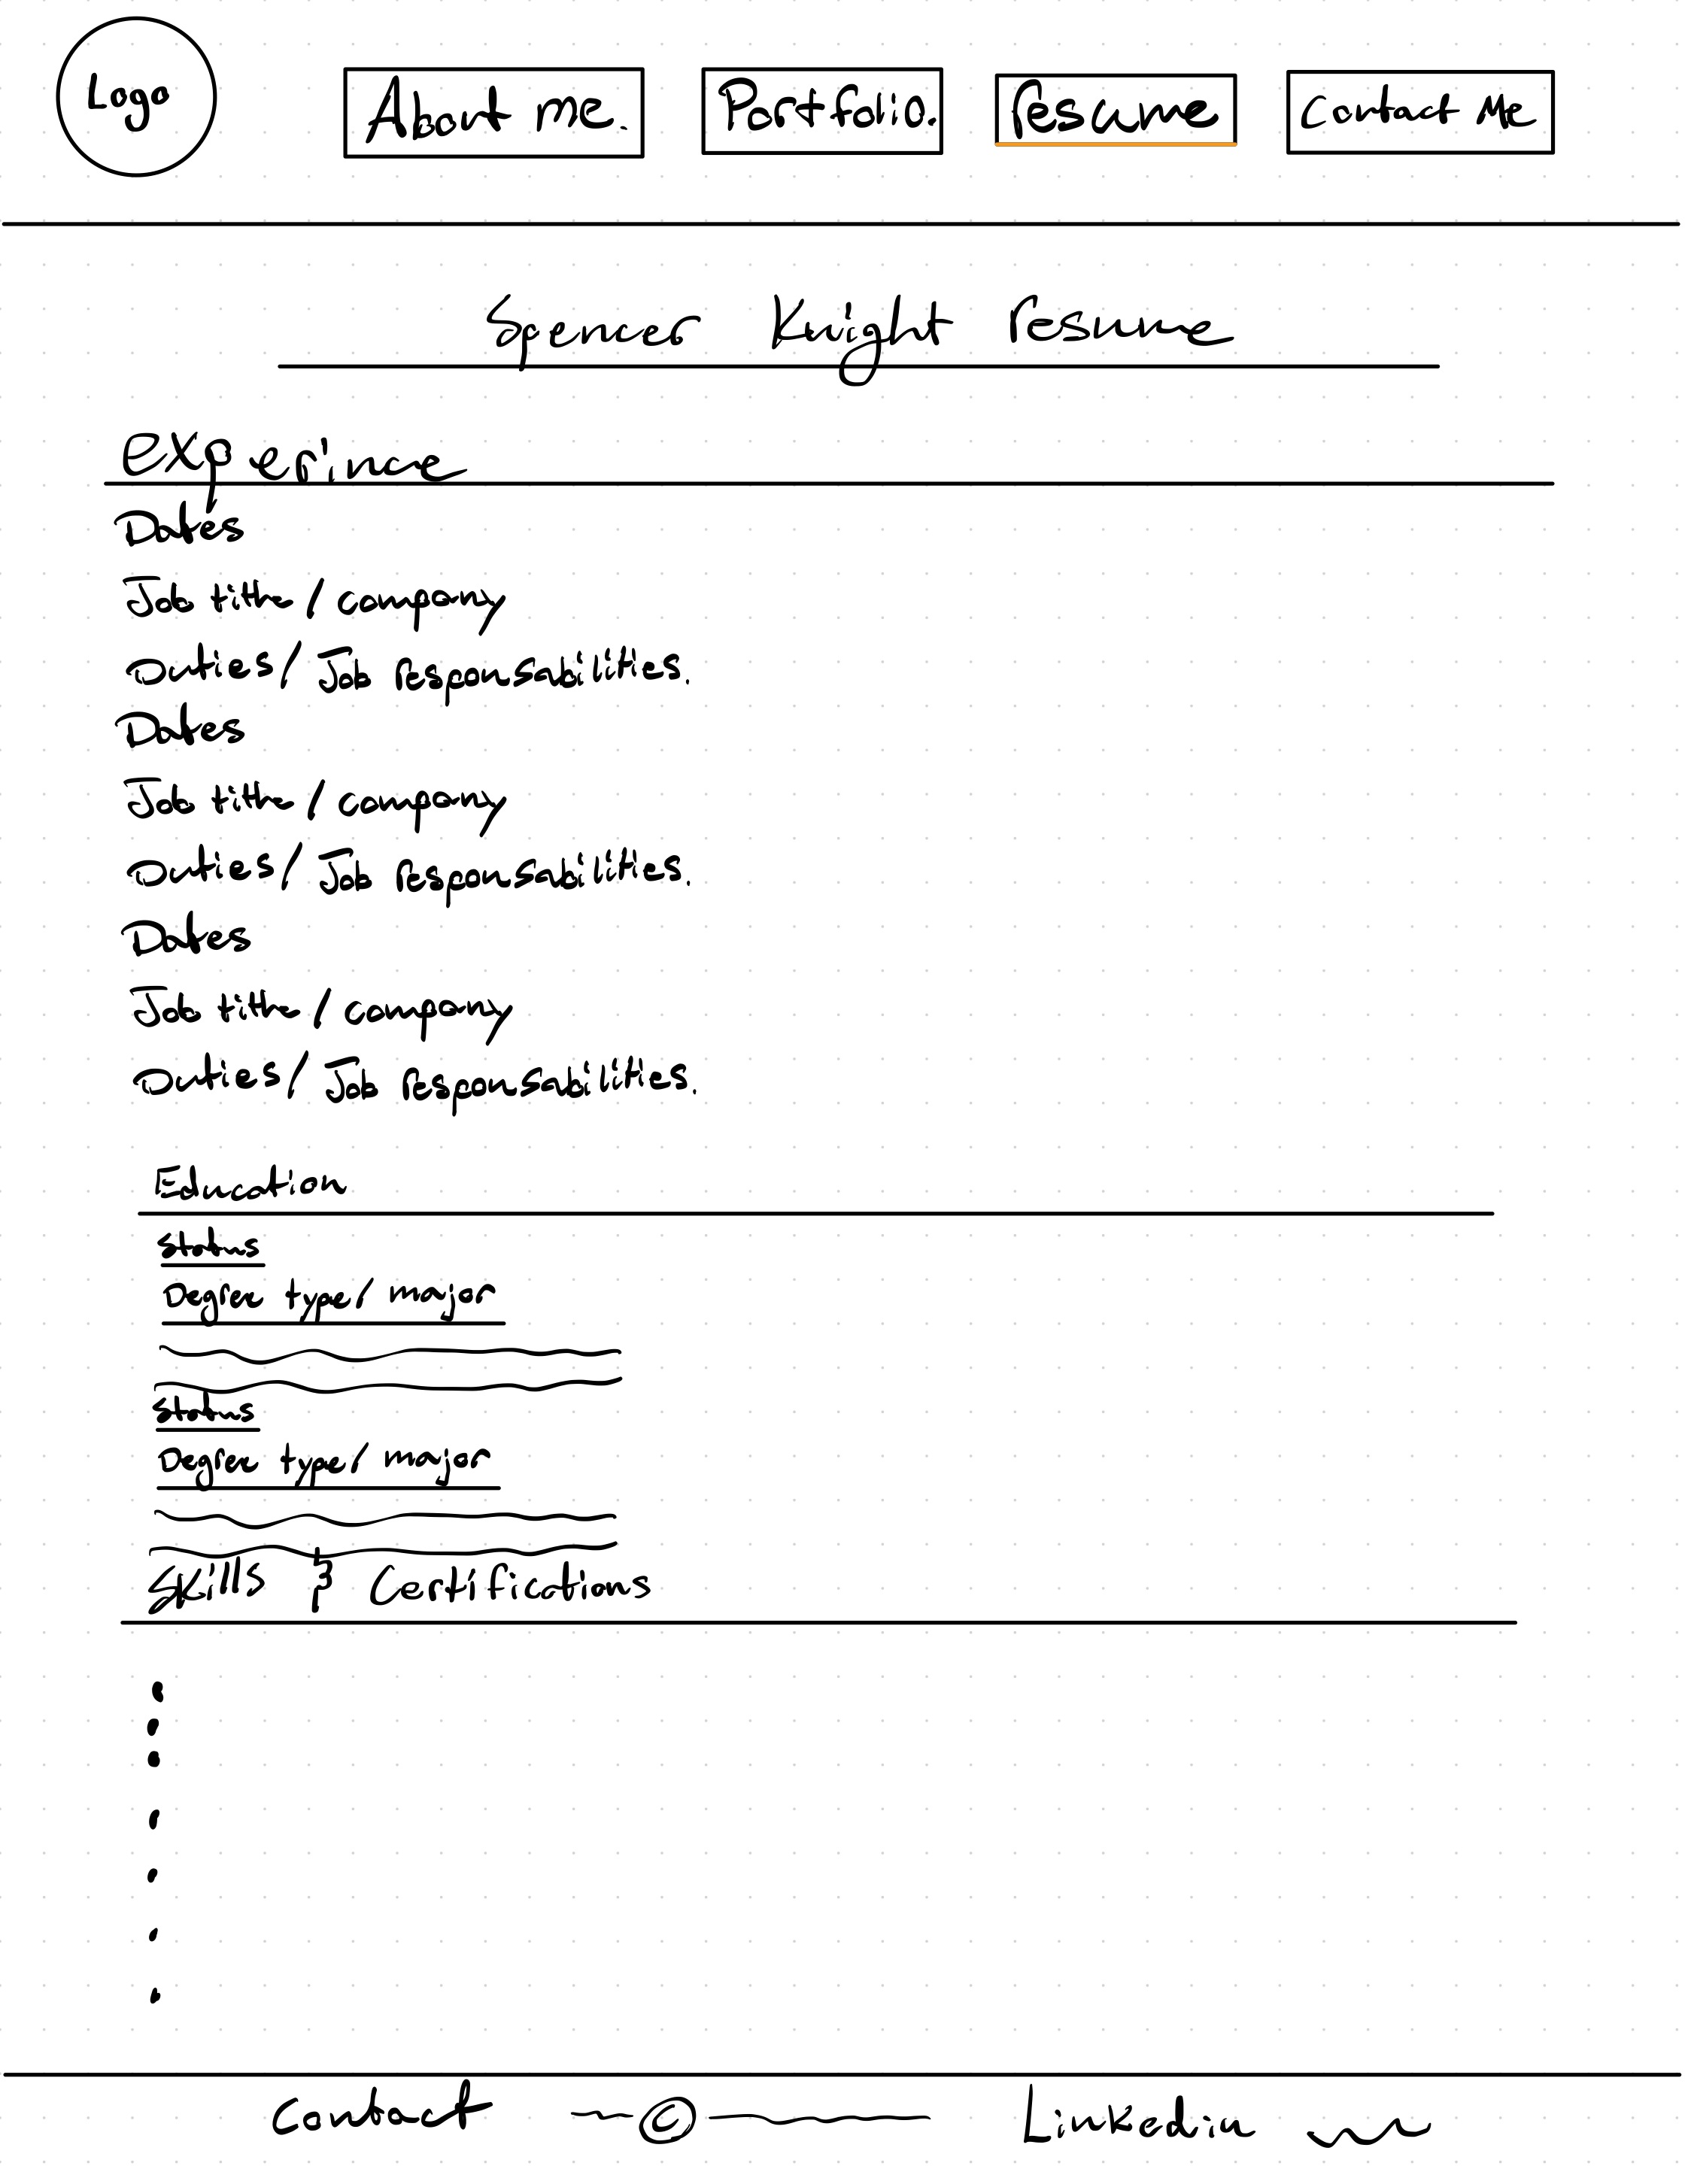 Logo
About me.
Portfolio.
resume
Contact Me
Spencer Knight resume
experince
Dates
Job title / company
Duties / Job responsabilities.
Dates
Job title / company
Duties / Job responsabilities.
Dates
Job title / company
Duties / Job responsabilities.
Education
Status
Degree type / major
Status
Degree type / major
Skills & Certifications
Contact © Linkedin